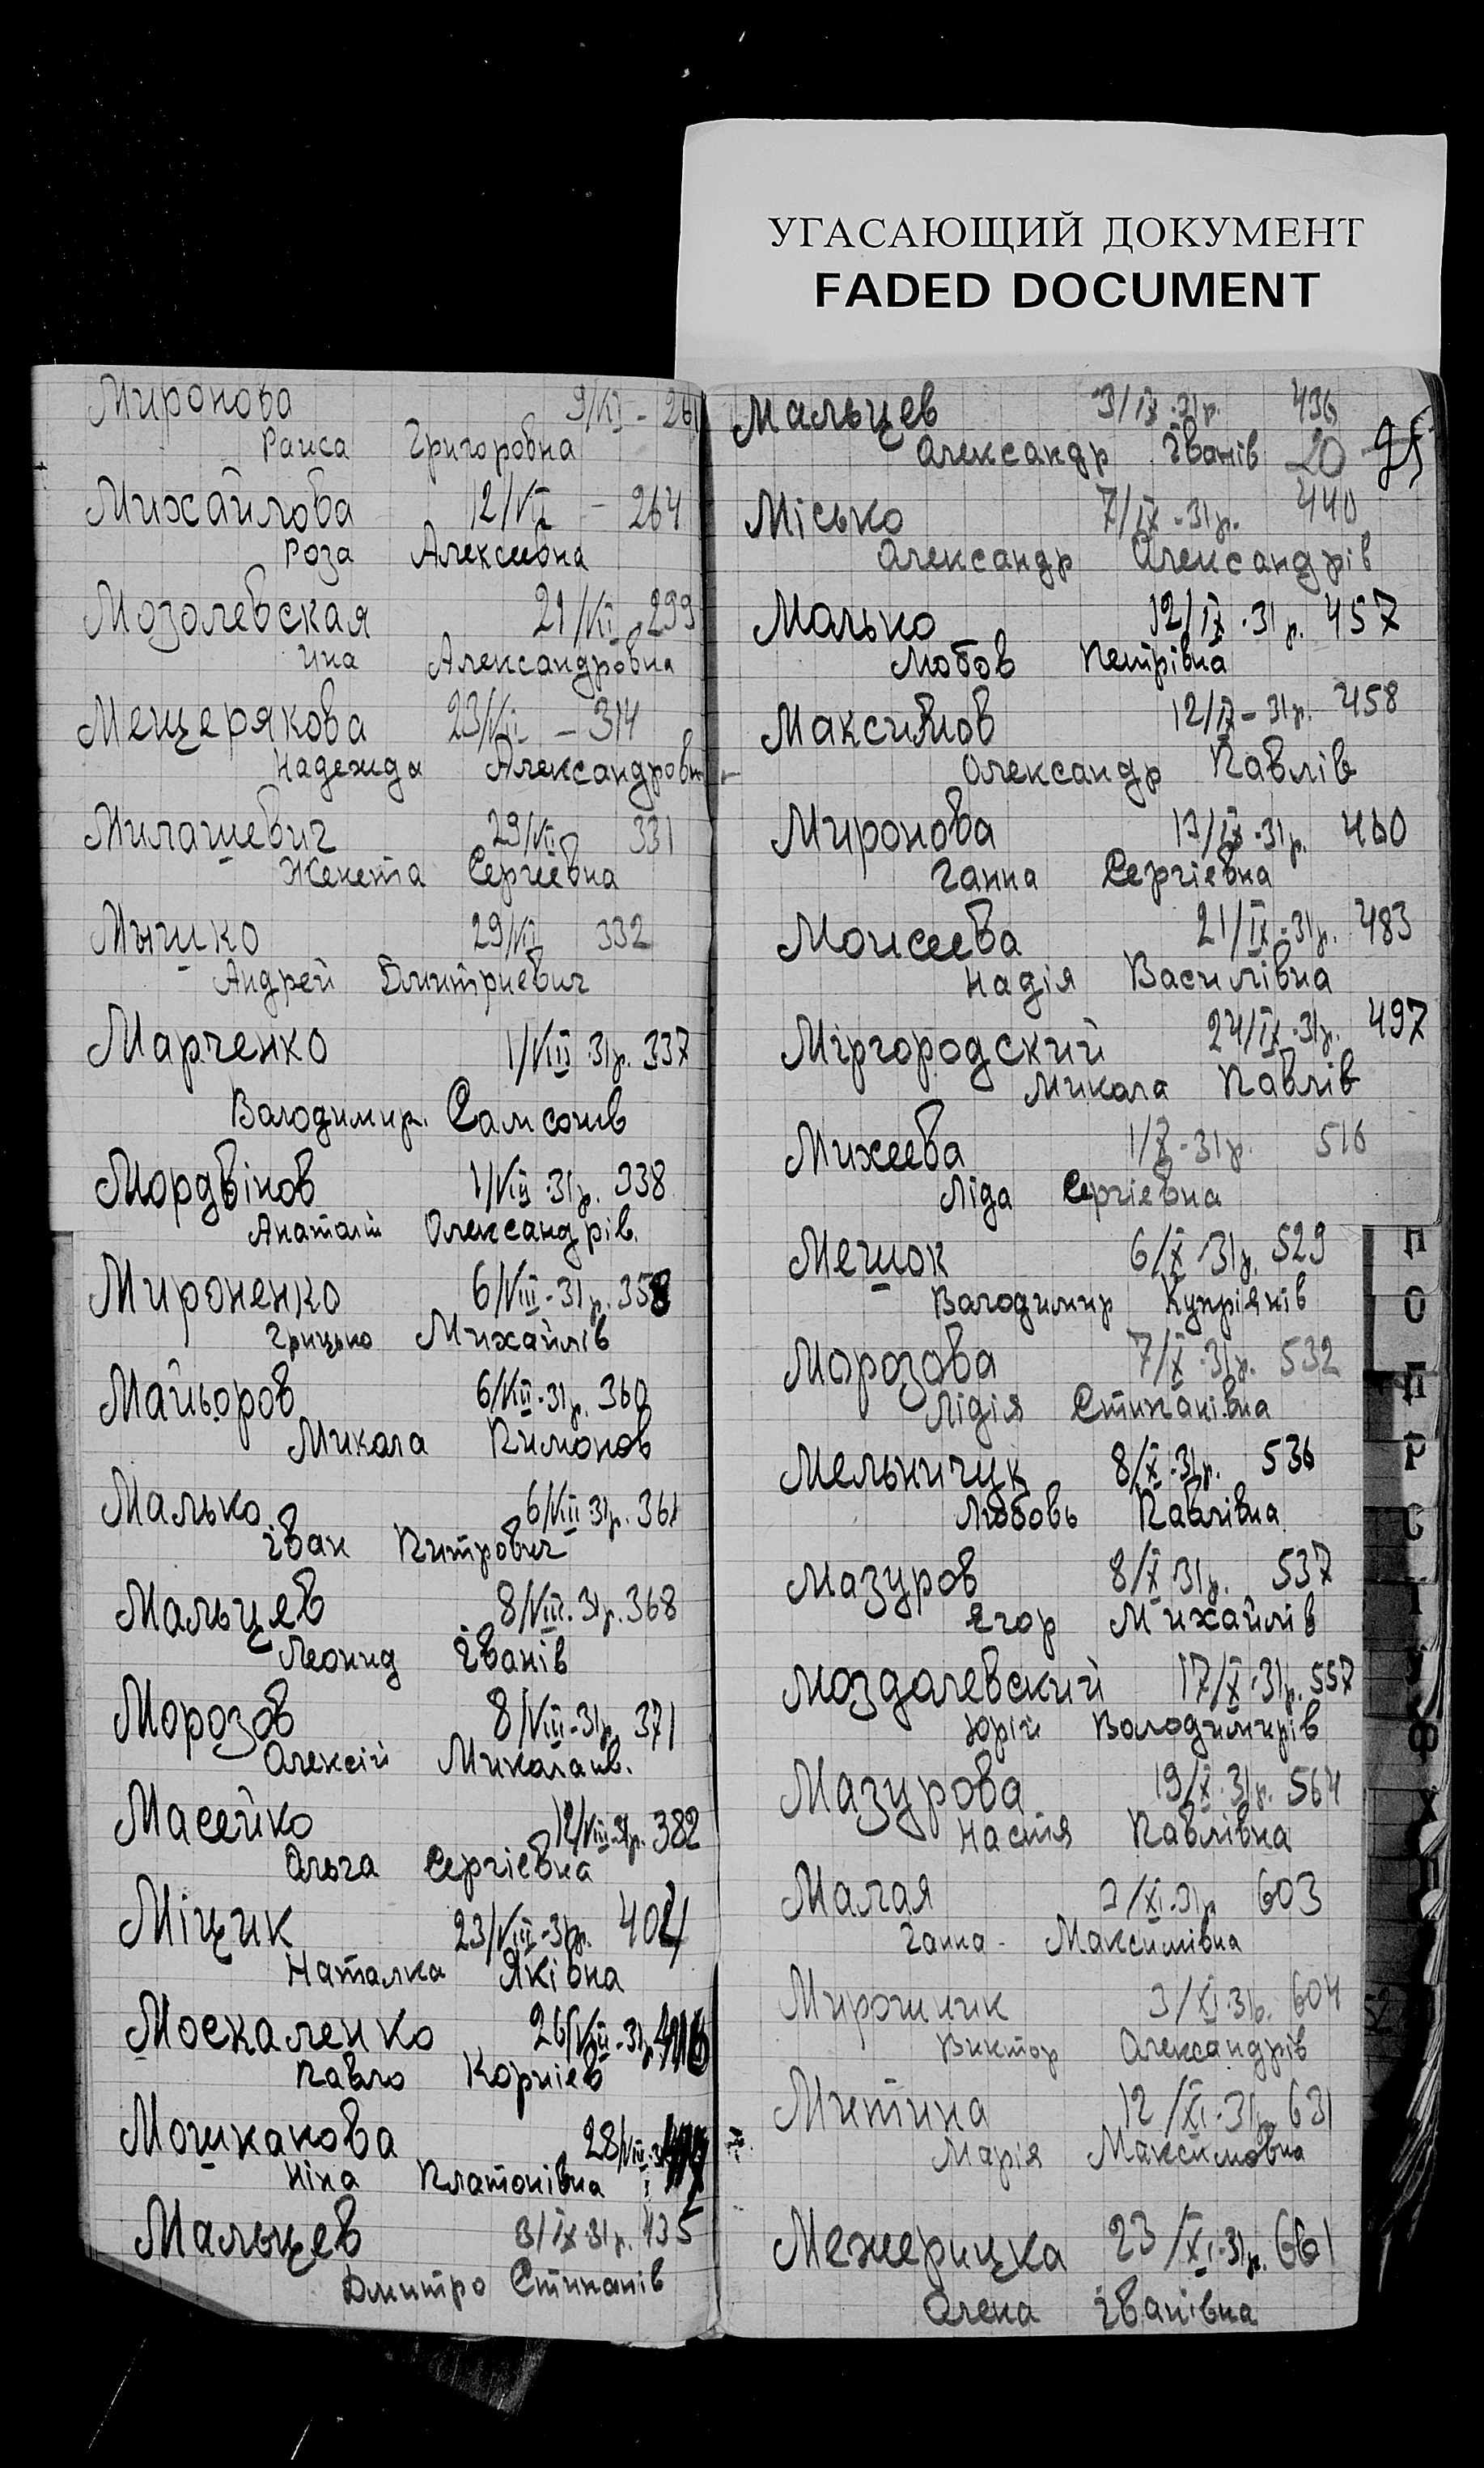 УГАСАЮЩИЙ ДОКУМЕНТ
FADED DOCUMENT
Миронова 9/VII - 261
Раиса Григоровна
Михайлова 12/VII - 264
Роза Алексеевна
Мозолевская 21/VII - 299
Ина Александровна
Мещерякова 23/VII - 314
Надежда Александровн
Милашевич 29/VII 331
Женета Сергеевна
Мышко 29/VII 332
Андрей Дмитриевич
Марченко 1/VIII 31р. 337
Володимир. Самсонів
Мордвінов 1/VIII 31р. 338
Анаталій Олександрів.
Мироненко 6/VIII - 31р. 358
Грицько Михайлів
Майьоров 6/VIII - 31р. 360
Микола Пимонов
Малько 6/VIII 31р. 361
Іван Питрович
Мальцев 8/VIII. 31р. 368
Леонид Іванів
Морозов 8/VIII - 31р. 371
Олексій Миколаив.
Масейко 12/VIII - 31р. 382
Ольга Сергіевна
Міщик 23/VIII - 31р. 404
Наталка Яківна
Москаленко 26/VIII - 31р.
Павло Корнієв
Мошканова 28/VIII
Ніна Платонівна
Мальцев 3/IX 31р. 435
Дмитро Стипанів
Мальцев 3/IX - 31р. 436
Олександр Іванів 20 25
Місько 7/IX - 31р. 440
Олександр Олександрів
Малько 12/IX - 31р. 457
Любов Петрівна
Максимов 12/IX - 31р. 458
Олександр Павлів
Миронова 13/IX - 31р. 460
Ганна Сергіевна
Моисеева 21/IX - 31р. 483
Надія Василівна
Міргородский 24/IX - 31р. 497
Микола Павлів
Михеева 1/X - 31р. 516
Ліда Сергіевна
Мешок 6/X - 31р. 529
Володимир Купріянів
Морозова 7/X - 31р. 532
Лідія Стипанівна
Мельничук 8/X - 31р. 536
Любовь Павлівна
Мазуров 8/X 31р. 537
Ягор Михайлів
Моздалевский 17/X - 31р. 557
Юрій Володимирів
Мазурова 19/X - 31р. 564
Настя Павлівна
Малая 3/XI - 31р 603
Ганна - Максимівна
Мирошник 3/XI - 31р. 604
Виктор Олександрів
Митина 12/XI - 31р. 631
Марія Максимовна
Межерицка 23/XI - 31р. 661
Олена Іванівна
П
О
П
Р
С
Т
У
Ф
Х